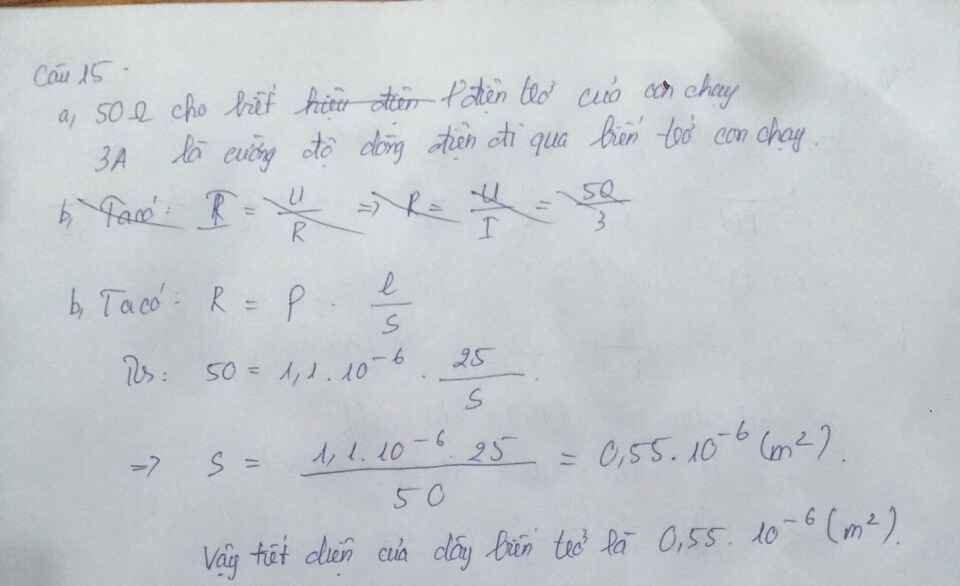 Câu 15.
a, 50Ω cho biết hiệu điện điện trở của con chạy
3A là cường độ dòng điện đi qua biến trở con chạy.
b, Ta có: I = U/R => R = U/I = 50/3
b, Ta có: R = ρ . l/S
50 = 1,1.10⁻⁶ . 25/S.
=> S = 1,1.10⁻⁶.25/50 = 0,55.10⁻⁶ (m²).
Vậy tiết diện của dây biến trở là 0,55.10⁻⁶ (m²).